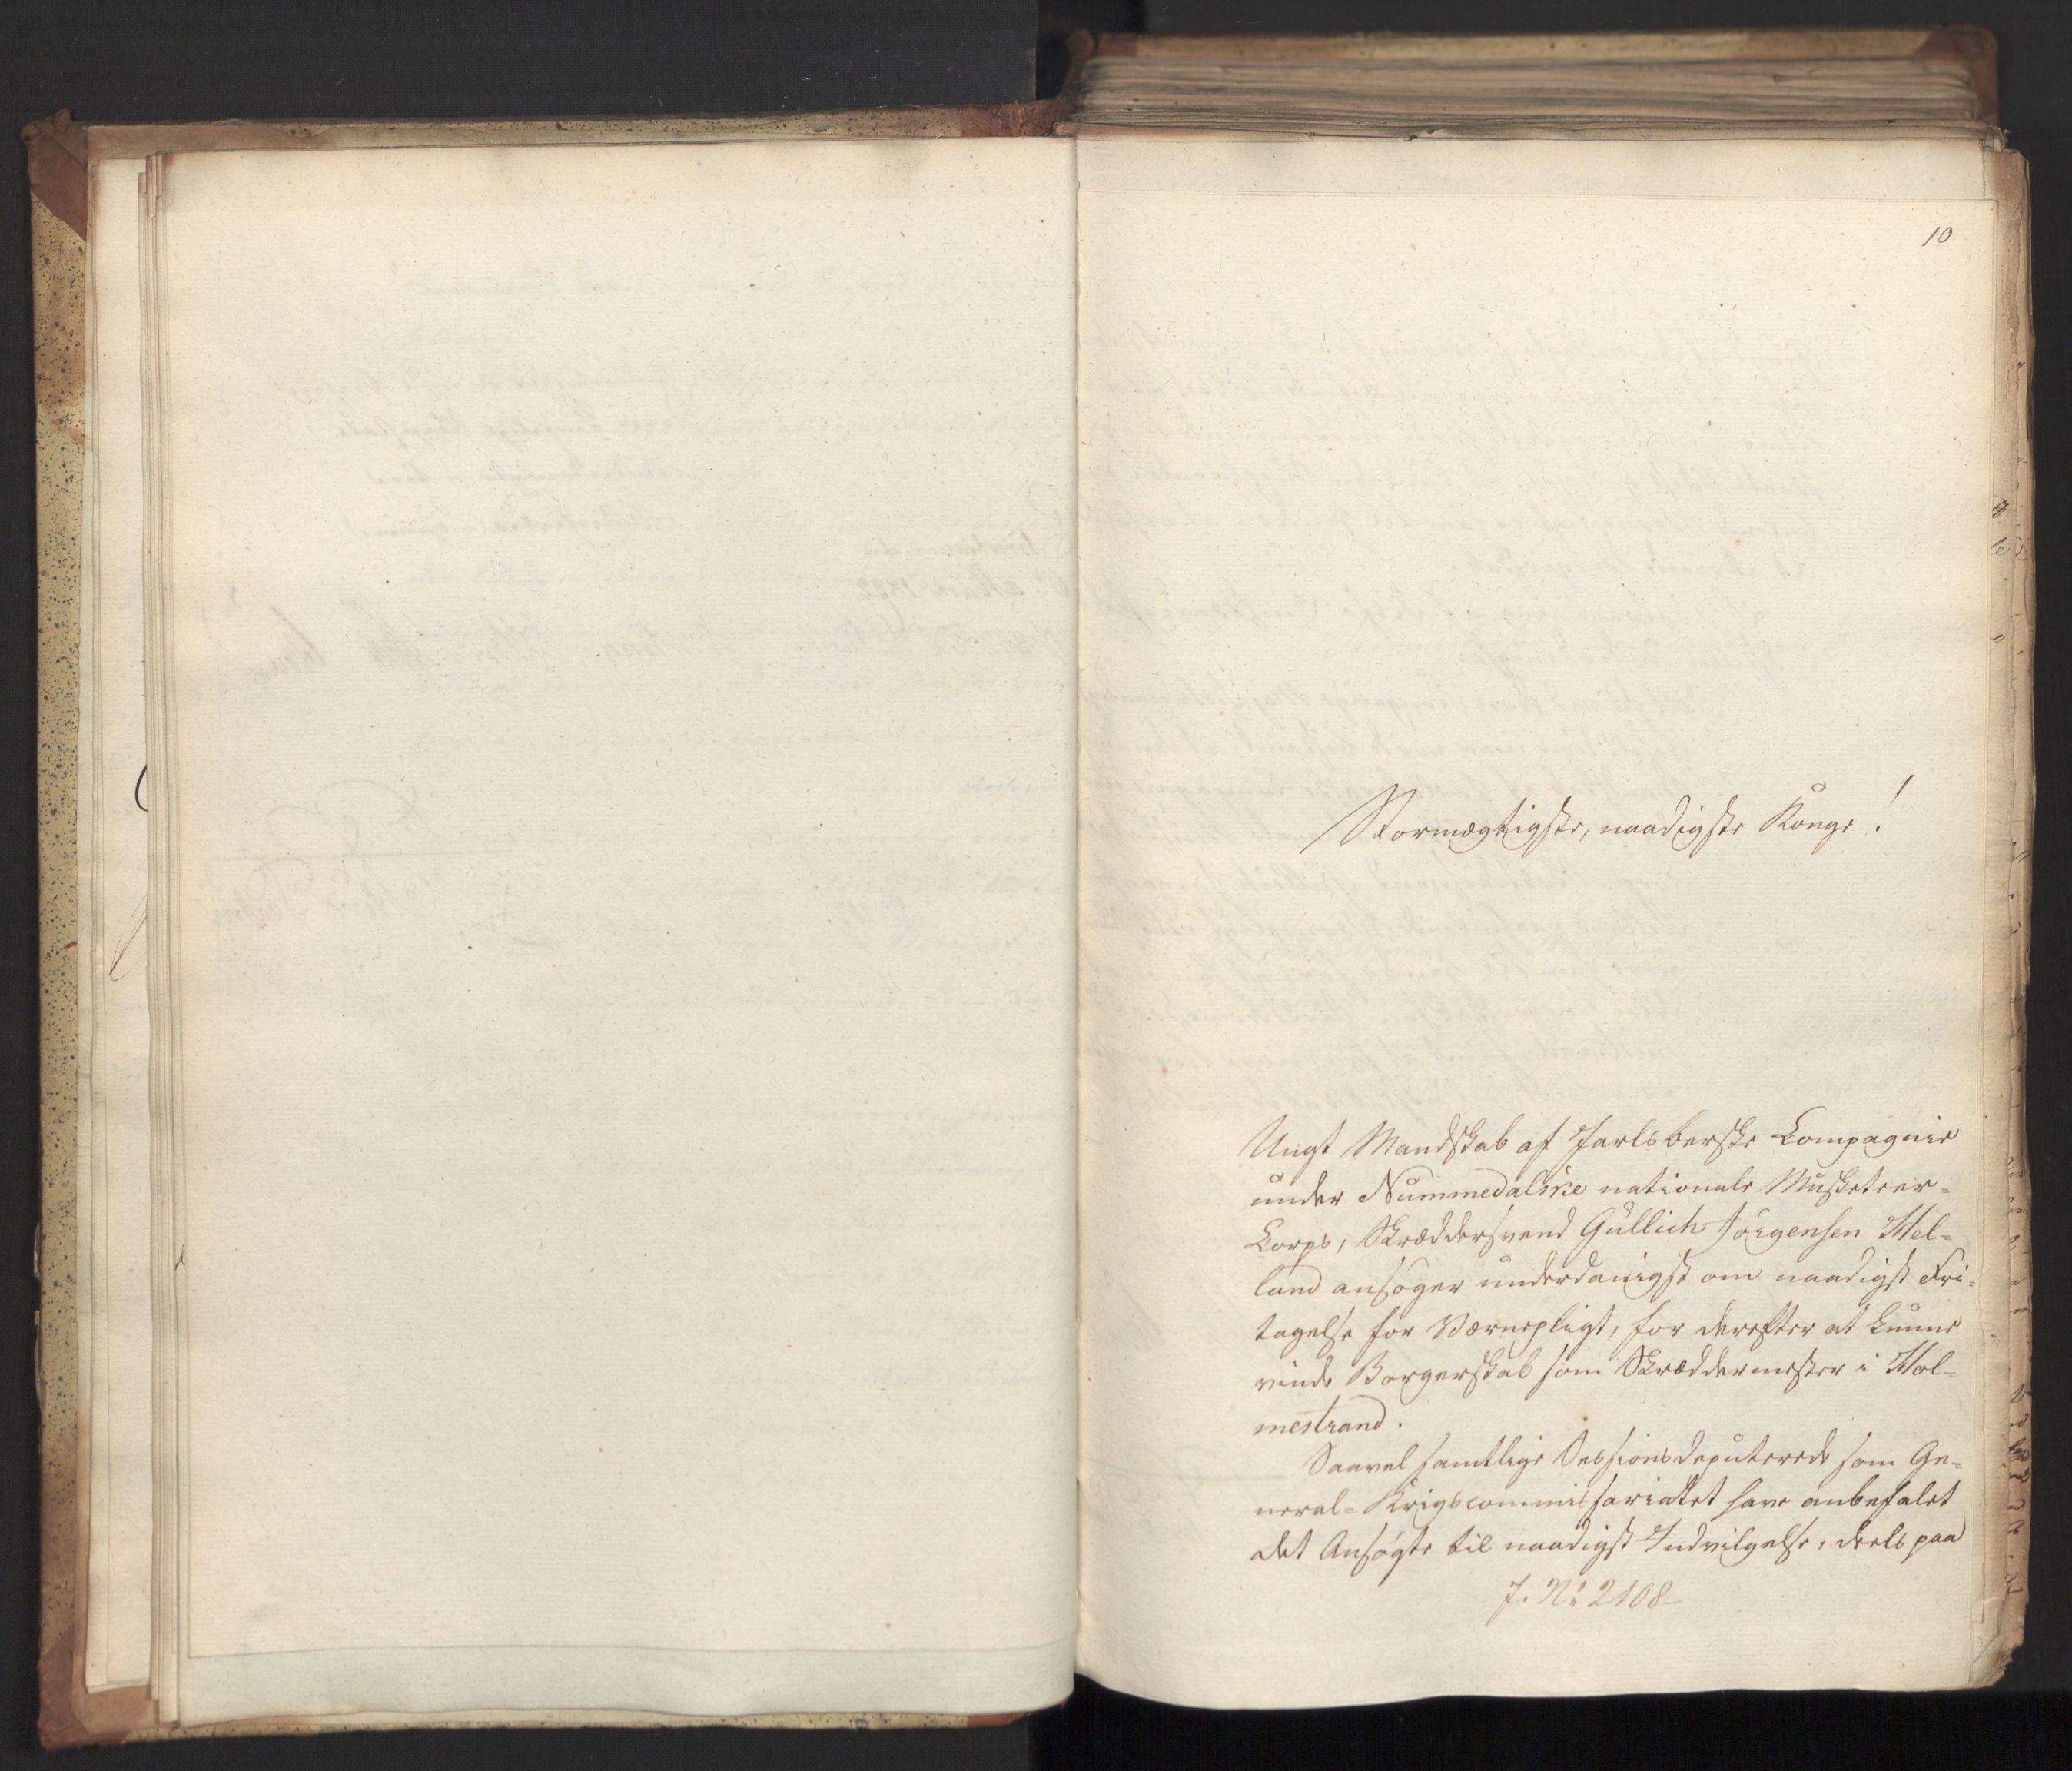 10
Stormægtigste, naadigste Konge!
Ungt Mandskab af Jarlsberske Compagnie
under Nummedalske nationale Musketeer=
Corps, Skræddersvend Gullich Jörgensen Hel=
land ansøger underdanigst om naadigst Fri=
tagelse for Værnepligt, for derefter at kunne
vinde Borgerskab som Skræddermester i Hol=
mestrand.
Saavel samtlige Sessionsdeputerede som Ge=
neral=Krigscommissariatet have anbefalet
det Ansøgte til naadigst Indvilgelse, deels paa
J. No 2108